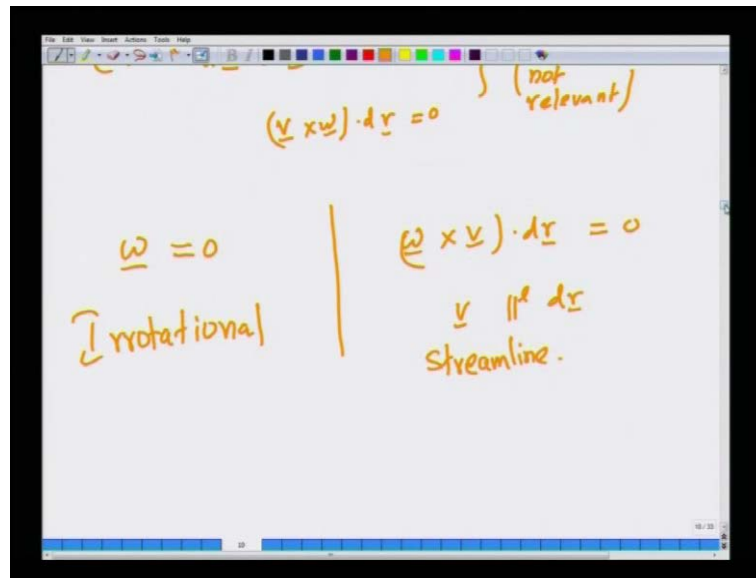 File Edit View Insert Actions Tools Help
B I
(not
relevant)
(v × ω) · dr = 0
ω = 0
(ω × v) · dr = 0
Irrotational
v ∥ˡ dr
Streamline.
10